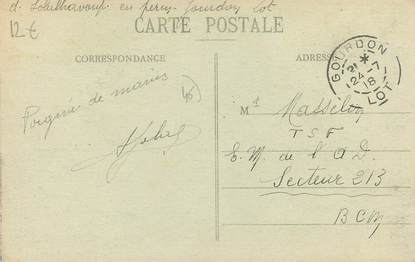 en Gourdon Lot
12€
CARTE POSTALE
CORRESPONDANCE
ADRESSE
GOURDON
LOT
21 *
24-7
18
Poignée de mains
Mr Massélon
TSF
E.M. de l'A D
Secteur 213
BCM